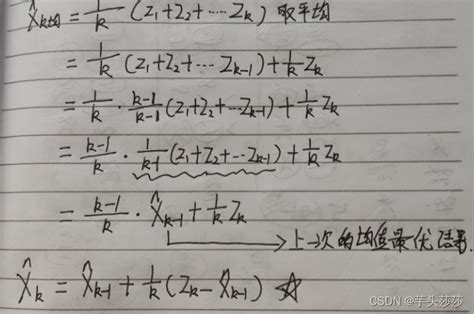 X̂k均 = 1/k (Z₁+Z₂+⋯Zk) 取平均
= 1/k (Z₁+Z₂+⋯Zk-1) + 1/k Zk
= 1/k · k-1/k-1 (Z₁+Z₂+⋯Zk-1) + 1/k Zk
= k-1/k · 1/k-1 (Z₁+Z₂+⋯Zk-1) + 1/k Zk
= k-1/k · X̂k-1 + 1/k Zk
→ 上一次的均值最优结果.
X̂k = X̂k-1 + 1/k (Zk - X̂k-1) ☆
CSDN @芋头莎莎